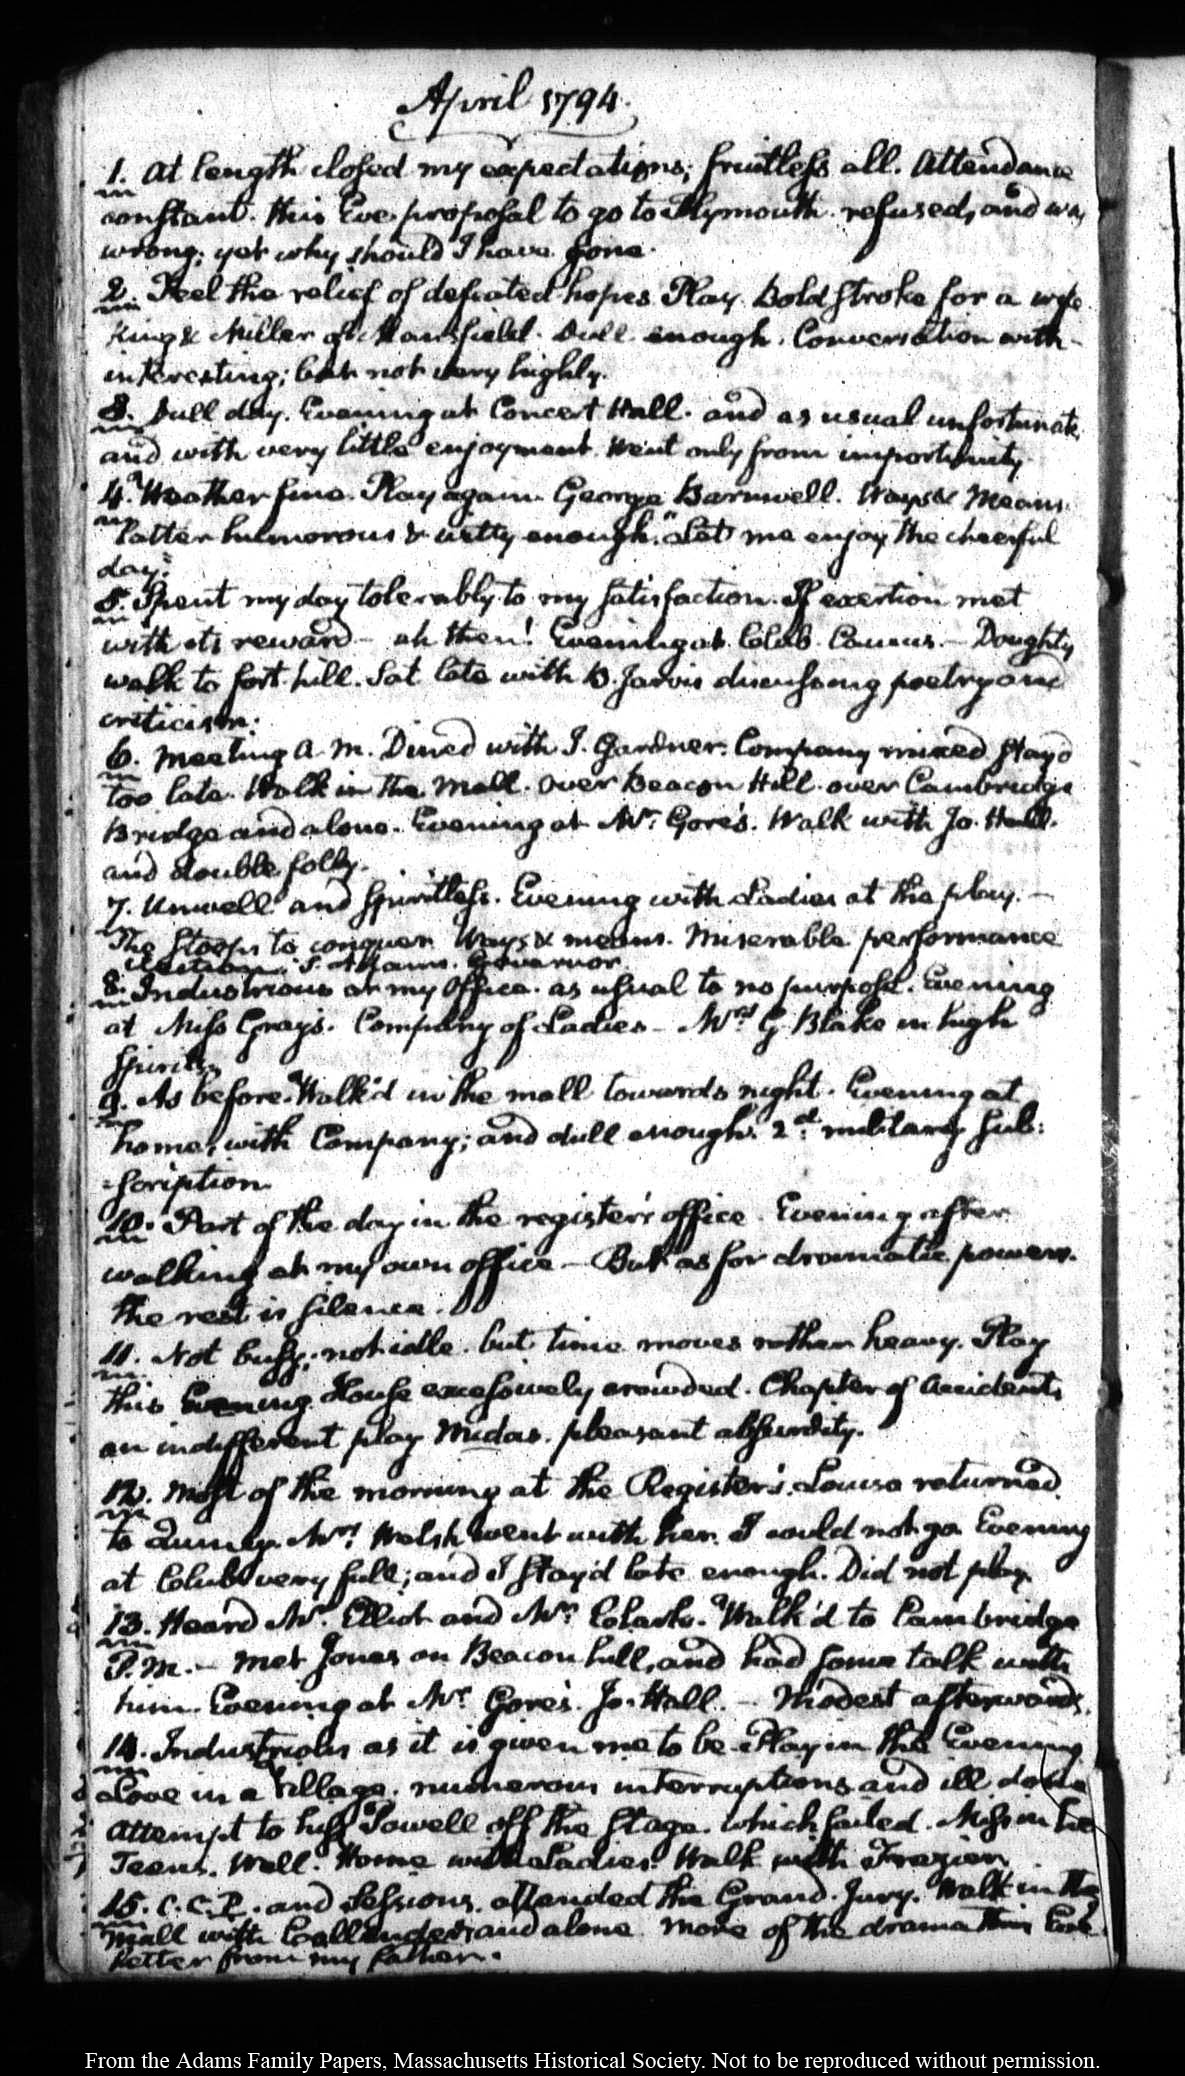 April 1794.
1. At length closed my expectations; fruitless all. Attendance
constant. this Eve. proposal to go to Plymouth. refused, and was
wrong; yet why should I have gone.
2. Feel the relief of defeated hopes. Play. Bold Stroke for a wife
King & Miller of Mansfield. Dull enough. Conversation with
interesting; but not very highly.
3. Dull day. Evening at Concert Hall. and as usual unfortunate,
and with very little enjoyment. Went only from importunity.
4. Weather fine. Play again. George Barnwell. Ways & Means.
latter humorous & witty enough. "Let me enjoy the cheerful
day."
5. Spent my day tolerably to my satisfaction. If exertion met
with its reward — ah then! Evening at Club. Caucus. — Doughty
walk to fort-hill. Sat late with B. Jarvis discussing poetry and
criticism.
6. Meeting A.M. Dined with J. Gardner. Company mixed stayd
too late. Walk in the Mall. over Beacon Hill. over Cambridge
Bridge and alone. Evening at Mr. Gore's. Walk with Jo. Hall.
and double folly.
7. Unwell and spiritless. Evening with Ladies at the play. —
She Stoops to conquer. Ways & means. Miserable performance
Election. S. Adams. Governor.
8. Industrious at my Office. as usual to no purpose. Evening
at Miss Gray's. Company of Ladies — Mrs. G. Blake in high
Spirits.
9. As before. Walk'd in the mall towards night. Evening at
home, with Company; and dull enough. 2d. military sub:
=scription.
10. Part of the day in the register's office. Evening after
walking at my own office — But as for dramatic powers.
the rest is silence.
11. Not busy; not idle. but time moves rather heavy. Play
this Evening House excessively crowded. Chapter of Accidents
an indifferent play Midas. pleasant absurdity.
12. Most of the morning at the Register's. Louisa returned
to Quincy. Mrs. Welsh went with her. I could not go. Evening
at Club very full; and I stay'd late enough. Did not play.
13. Heard Mr. Elliot and Mr. Clark. Walk'd to Cambridge
P.M. — Met Jones on Beacon hill, and had some talk with
him. Evening at Mr. Gore's. Jo. Hall. — Modest afterwards.
14. Industrious as it is given me to be. Play in the Evening
Love in a Village. numerous interruptions and ill done
Attempt to hiss Powell off the stage. which failed. Miss in her
Teens. Well. Home with Ladies. Walk with Frazier
15. C.C.P. and Sessions. attended the Grand-Jury. Walk in the
Mall with Callender, and alone. More of the drama this Eve.
Letter from my father.
From the Adams Family Papers, Massachusetts Historical Society. Not to be reproduced without permission.